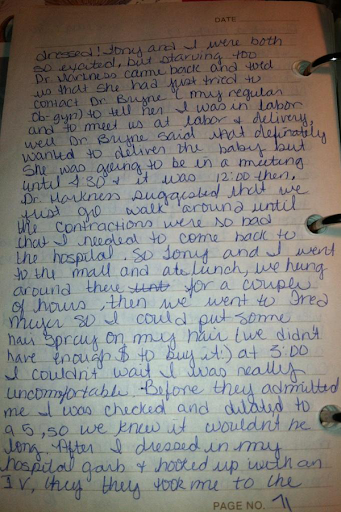 DATE
dressed! Tony and I were both
so excited, but starving too
Dr. Harkness came back and told
us that she had just tried to
contact Dr. Bryne (my regular
Ob-gyn) to tell her I was in labor
and to meet us at labor & delivery,
well Dr. Bryne said that definately
wanted to deliver the baby but
She was going to be in a meeting
until 4:30 & it was 12:00 then.
Dr. Harkness suggested that we
just go walk around until
the contractions were so bad
that I needed to come back to
the hospital. So Tony and I went
to the mall and ate lunch, we hung
around there for a couple
of hours, then we went to Fred
Meyer so I could put some
hair spray on my hair (we didn't
have enough $ to buy it:) at 3:00
I couldn't wait I was really
uncomfortable. Before they admitted
me I was checked and dilated to
a 5, so we knew it wouldn't be
long. After I dressed in my
hospital garb & hooked up with an
I V, they they took me to the
PAGE NO. 71